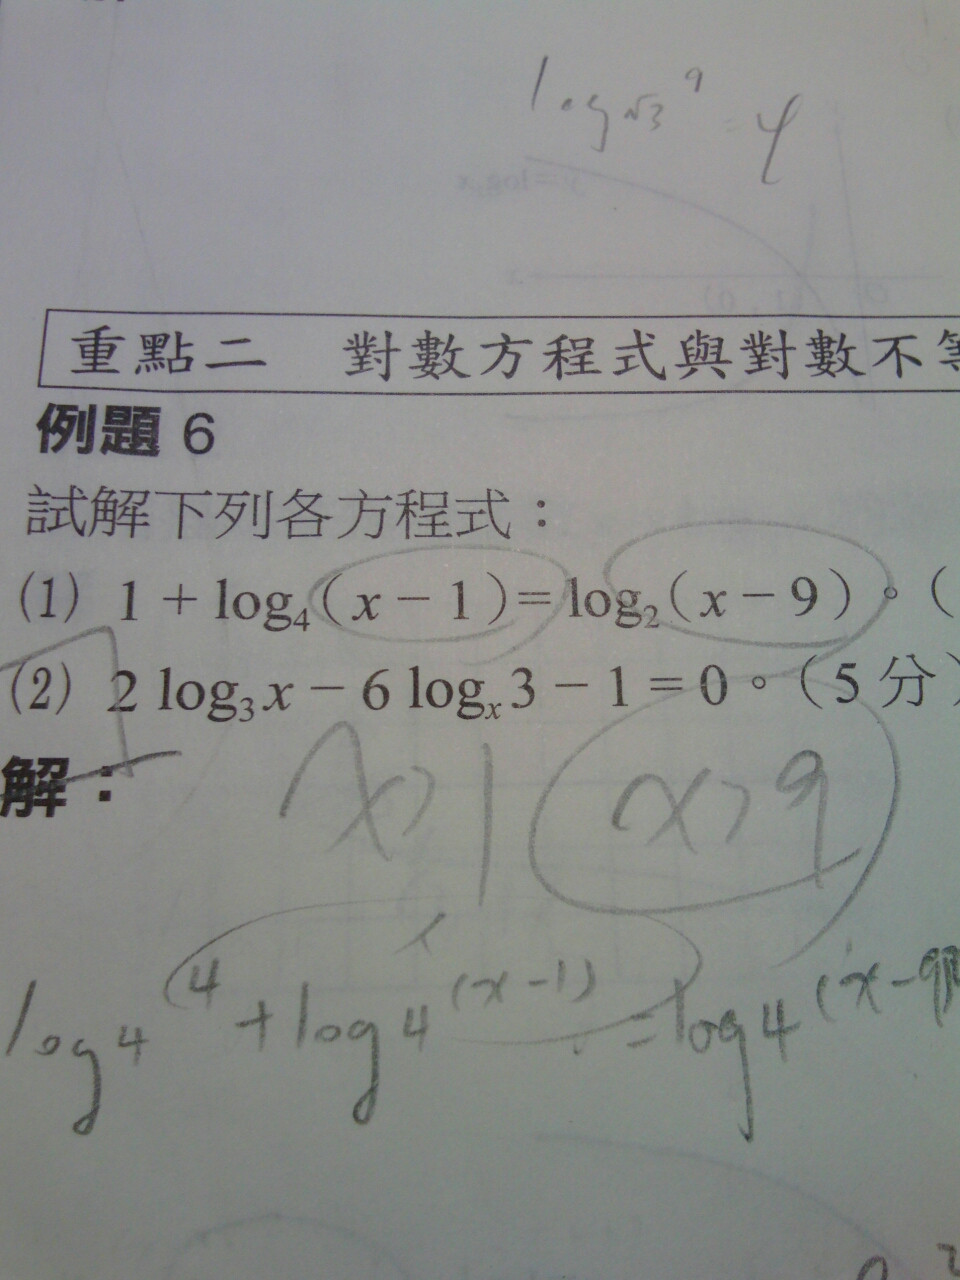 log√3 9 = 4
重點二 對數方程式與對數不
例題 6
試解下列各方程式：
(1) 1 + log₄(x − 1) = log₂(x − 9)。(
(2) 2 log₃x − 6 logₓ3 − 1 = 0。(5 分)
解：
x>1 x>9
log₄(4 + log₄(x-1) = log₄(x-9)²